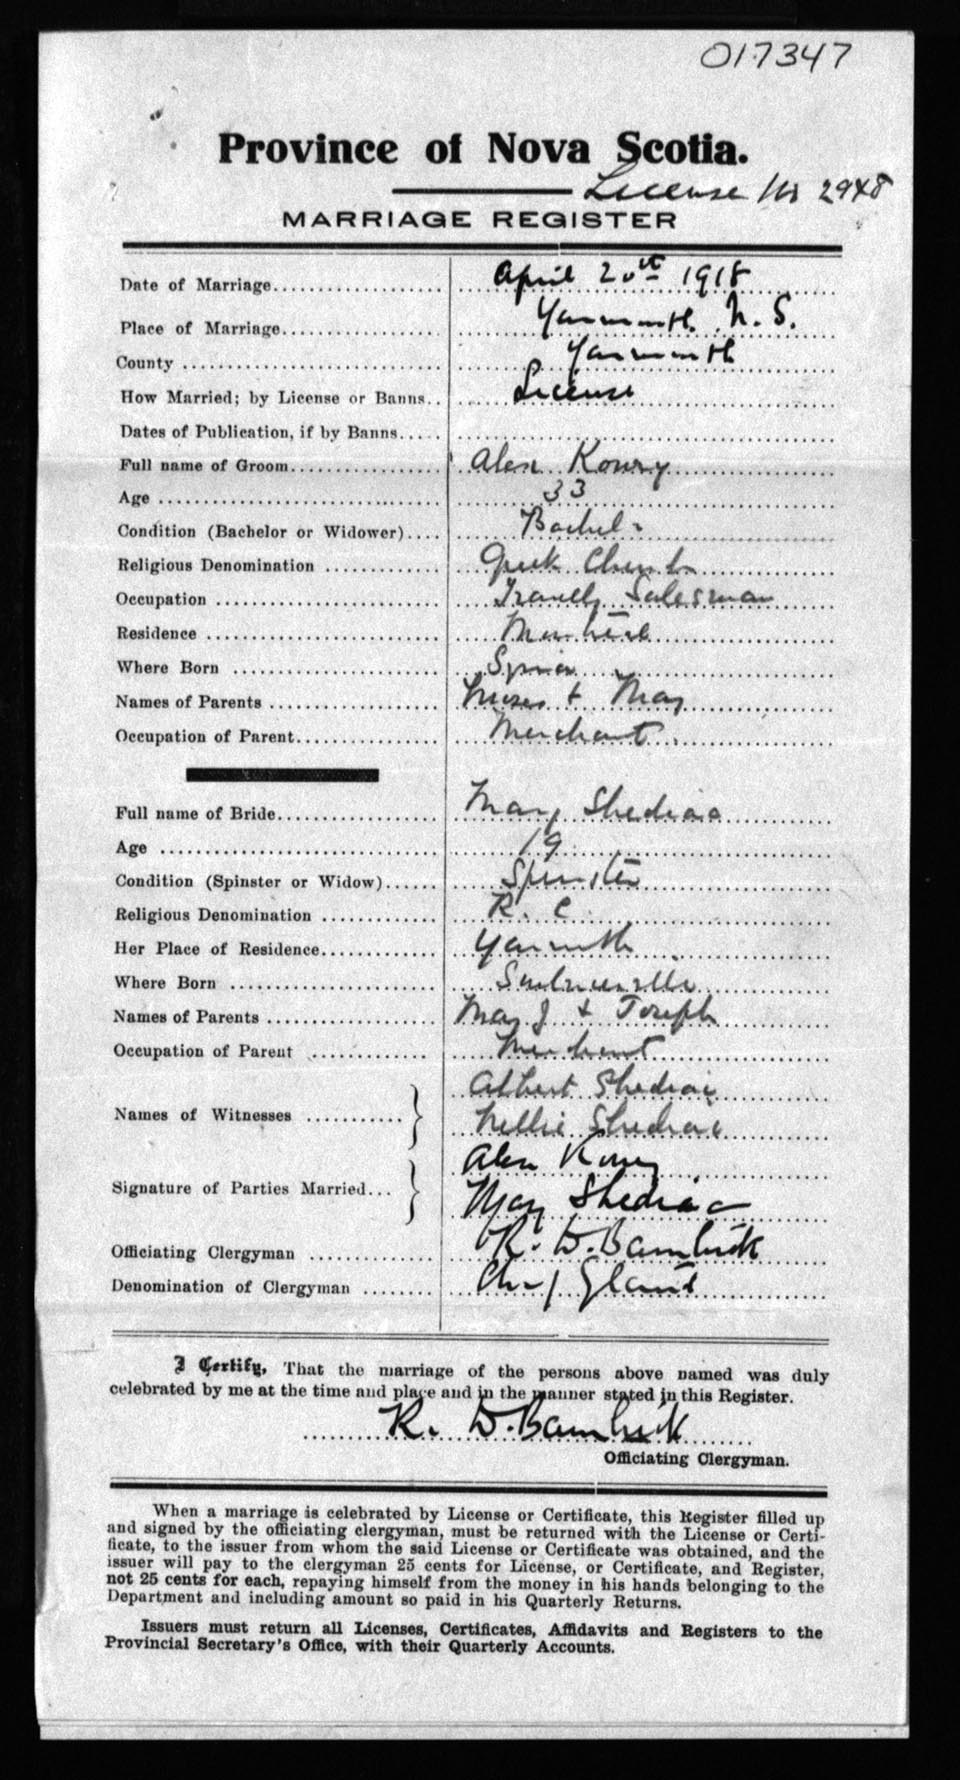 017347
Province of Nova Scotia.
License No 2948
MARRIAGE REGISTER
Date of Marriage.................... April 20th 1918
Place of Marriage................... Yarmouth. N. S.
County .............................. Yarmouth
How Married; by License or Banns.. License
Dates of Publication, if by Banns.....
Full name of Groom................. Alex Koury
Age ................................. 33
Condition (Bachelor or Widower).... Bachelor
Religious Denomination ............. Greek Church
Occupation .......................... Travelg Salesman
Residence ........................... Montreal
Where Born ........................ Syria
Names of Parents .................... Moses + Mary
Occupation of Parent................. Merchant
Full name of Bride................... Mary Shediac
Age ................................. 19
Condition (Spinster or Widow)...... Spinster
Religious Denomination ............. R. C.
Her Place of Residence............. Yarmouth
Where Born ........................
Names of Parents .................... Mary J + Joseph
Occupation of Parent ............. Merchant
Names of Witnesses ........... Albert Shediac
Nellie Shediac
Signature of Parties Married... Alex Koury
Mary Shediac
Officiating Clergyman .............. R. D. Bambrick
Denomination of Clergyman ........ Ch of Gland
I Certify, That the marriage of the persons above named was duly
celebrated by me at the time and place and in the manner stated in this Register.
R. D. Bambrick
Officiating Clergyman.
When a marriage is celebrated by License or Certificate, this Register filled up
and signed by the officiating clergyman, must be returned with the License or Certi-
ficate, to the issuer from whom the said License or Certificate was obtained, and the
issuer will pay to the clergyman 25 cents for License, or Certificate, and Register,
not 25 cents for each, repaying himself from the money in his hands belonging to the
Department and including amount so paid in his Quarterly Returns.
Issuers must return all Licenses, Certificates, Affidavits and Registers to the
Provincial Secretary's Office, with their Quarterly Accounts.